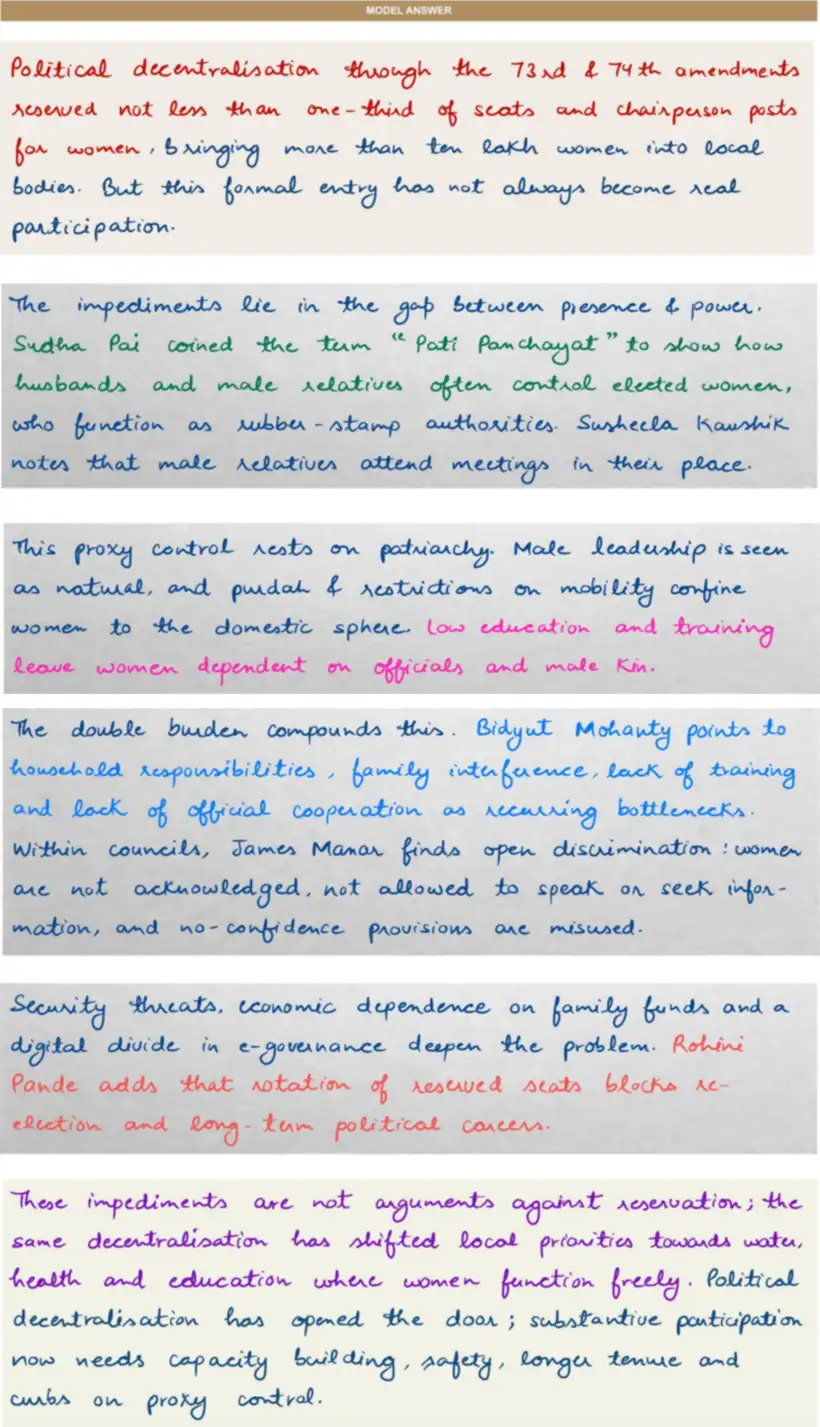 MODEL ANSWER
Political decentralisation through the 73rd & 74th amendments
reserved not less than one-third of seats and chairperson posts
for women, bringing more than ten lakh women into local
bodies. But this formal entry has not always become real
participation.
The impediments lie in the gap between presence & power.
Sudha Pai coined the term "Pati Panchayat" to show how
husbands and male relatives often control elected women,
who function as rubber-stamp authorities. Susheela Kaushik
notes that male relatives attend meetings in their place.
This proxy control rests on patriarchy. Male leadership is seen
as natural, and purdah & restrictions on mobility confine
women to the domestic sphere. Low education and training
leave women dependent on officials and male kin.
The double burden compounds this. Bidyut Mohanty points to
household responsibilities, family interference, lack of training
and lack of official cooperation as recurring bottlenecks.
Within councils, James Manor finds open discrimination: women
are not acknowledged, not allowed to speak or seek infor-
mation, and no-confidence provisions are misused.
Security threats, economic dependence on family funds and a
digital divide in e-governance deepen the problem. Rohini
Pande adds that rotation of reserved seats blocks re-
election and long-term political careers.
These impediments are not arguments against reservation; the
same decentralisation has shifted local priorities towards water,
health and education where women function freely. Political
decentralisation has opened the door; substantive participation
now needs capacity building, safety, longer tenure and
curbs on proxy control.